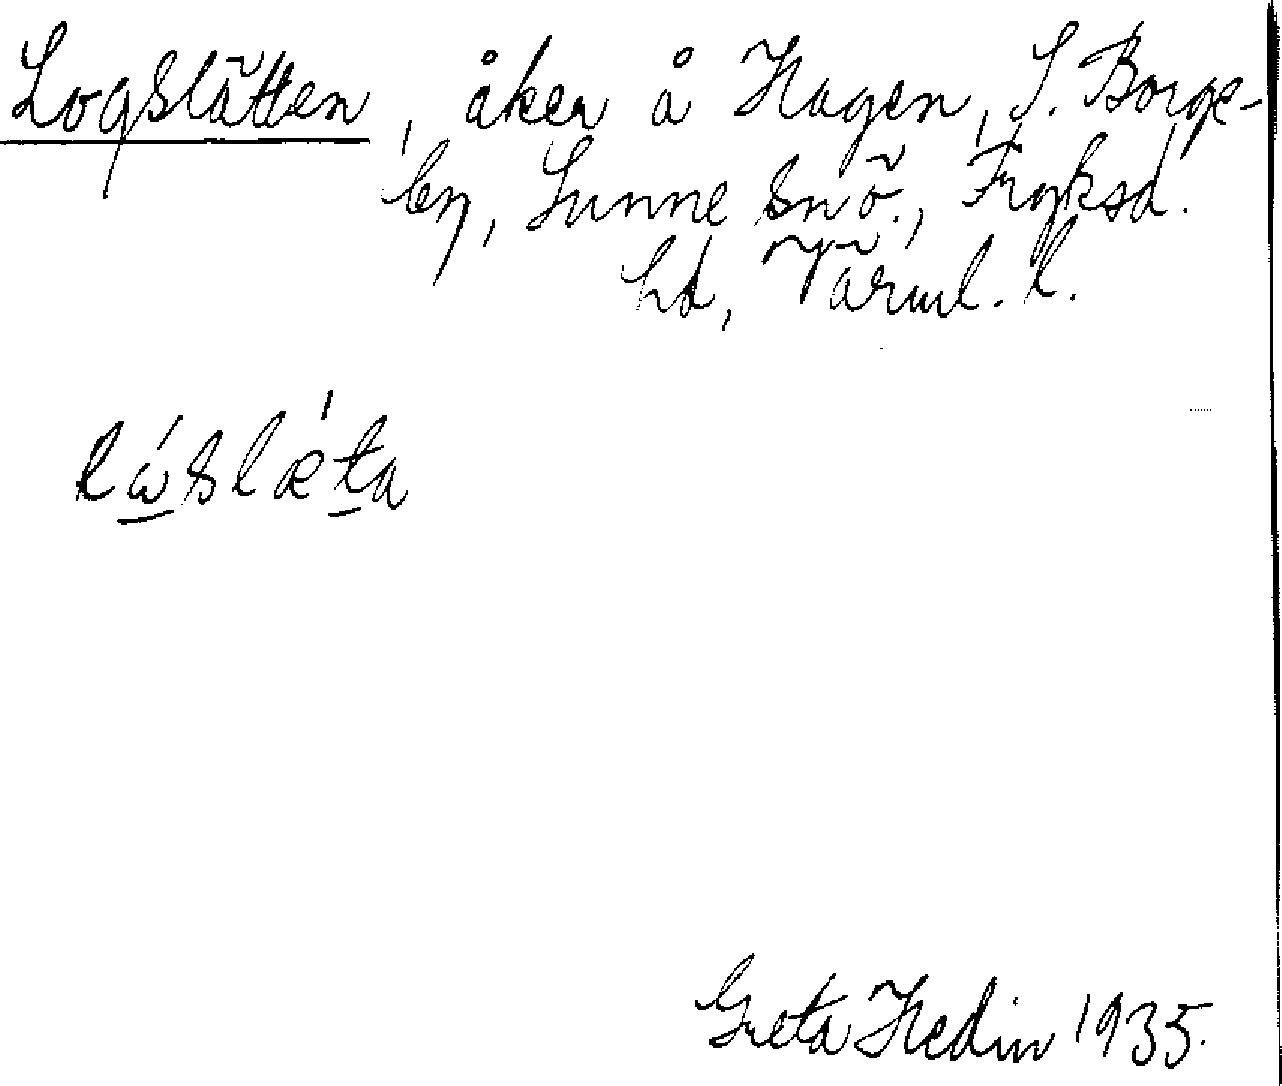 Logslätten, åker å Hagen, S. Borge-
by, Sunne snö., Fryksd.
hd, Värml. l.
lώslæ̀ta
Greta Hedin 1935.